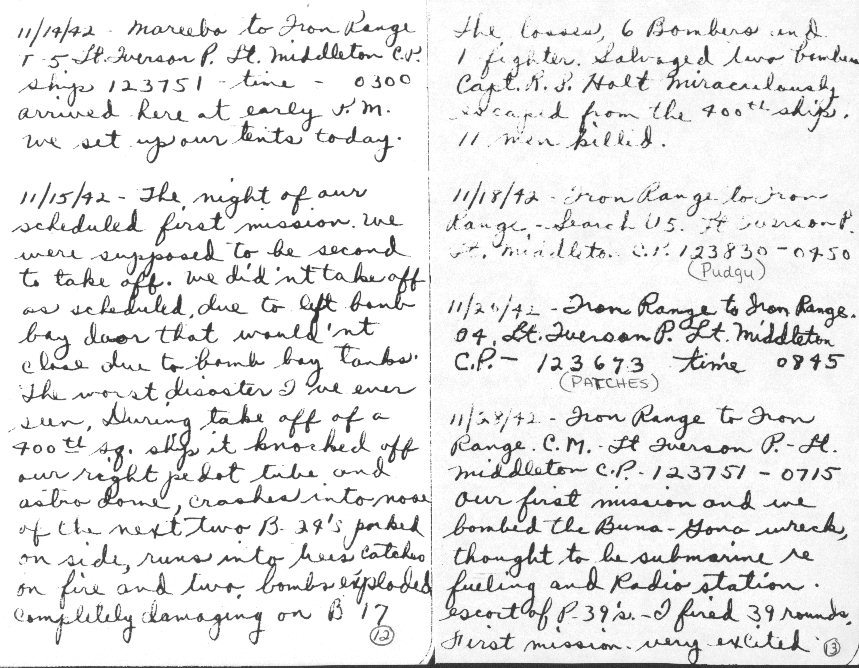 11/14/42 - Mareeba to Iron Range
T-5 Lt. Iverson P. Lt. Middleton C.P.
ship 123751 - time - 0300
arrived here at early P.M.
We set up our tents today.
11/15/42 - The night of our
scheduled first mission. We
were supposed to be second
to take off. We did'nt take off
as scheduled, due to left bomb
bay door that would'nt
close due to bomb bay tanks.
The worst disaster I've ever
seen, During take off of a
400th sq. ship it knocked off
our right pedot tube and
astro dome, crashes into nose
of the next two B-24's parked
on side, runs into trees catches
on fire and two bombs exploded
completely damaging on B 17
12
The losses, 6 Bombers and
1 fighter. Salvaged two bombers
Capt. R. S. Holt miraculously
escaped from the 400th ship.
11 men killed.
11/18/42 - Iron Range to Iron
Range - Search U5. Lt Iverson P.
Lt. Middleton C.P. 123830 - 0450
(Pudgu)
11/26/42 - Iron Range to Iron Range.
04, Lt. Iverson P. Lt. Middleton
C.P. - 123673 time 0845
(PATCHES)
11/28/42 - Iron Range to Iron
Range. C.M. - Lt Iverson P. - Lt.
Middleton C.P. - 123751 - 0715
Our first mission and we
bombed the Buna-Gona wreck,
thought to be submarine re
fueling and Radio station.
escort of P.39's. - I fired 39 rounds.
First mission. very excited.
13